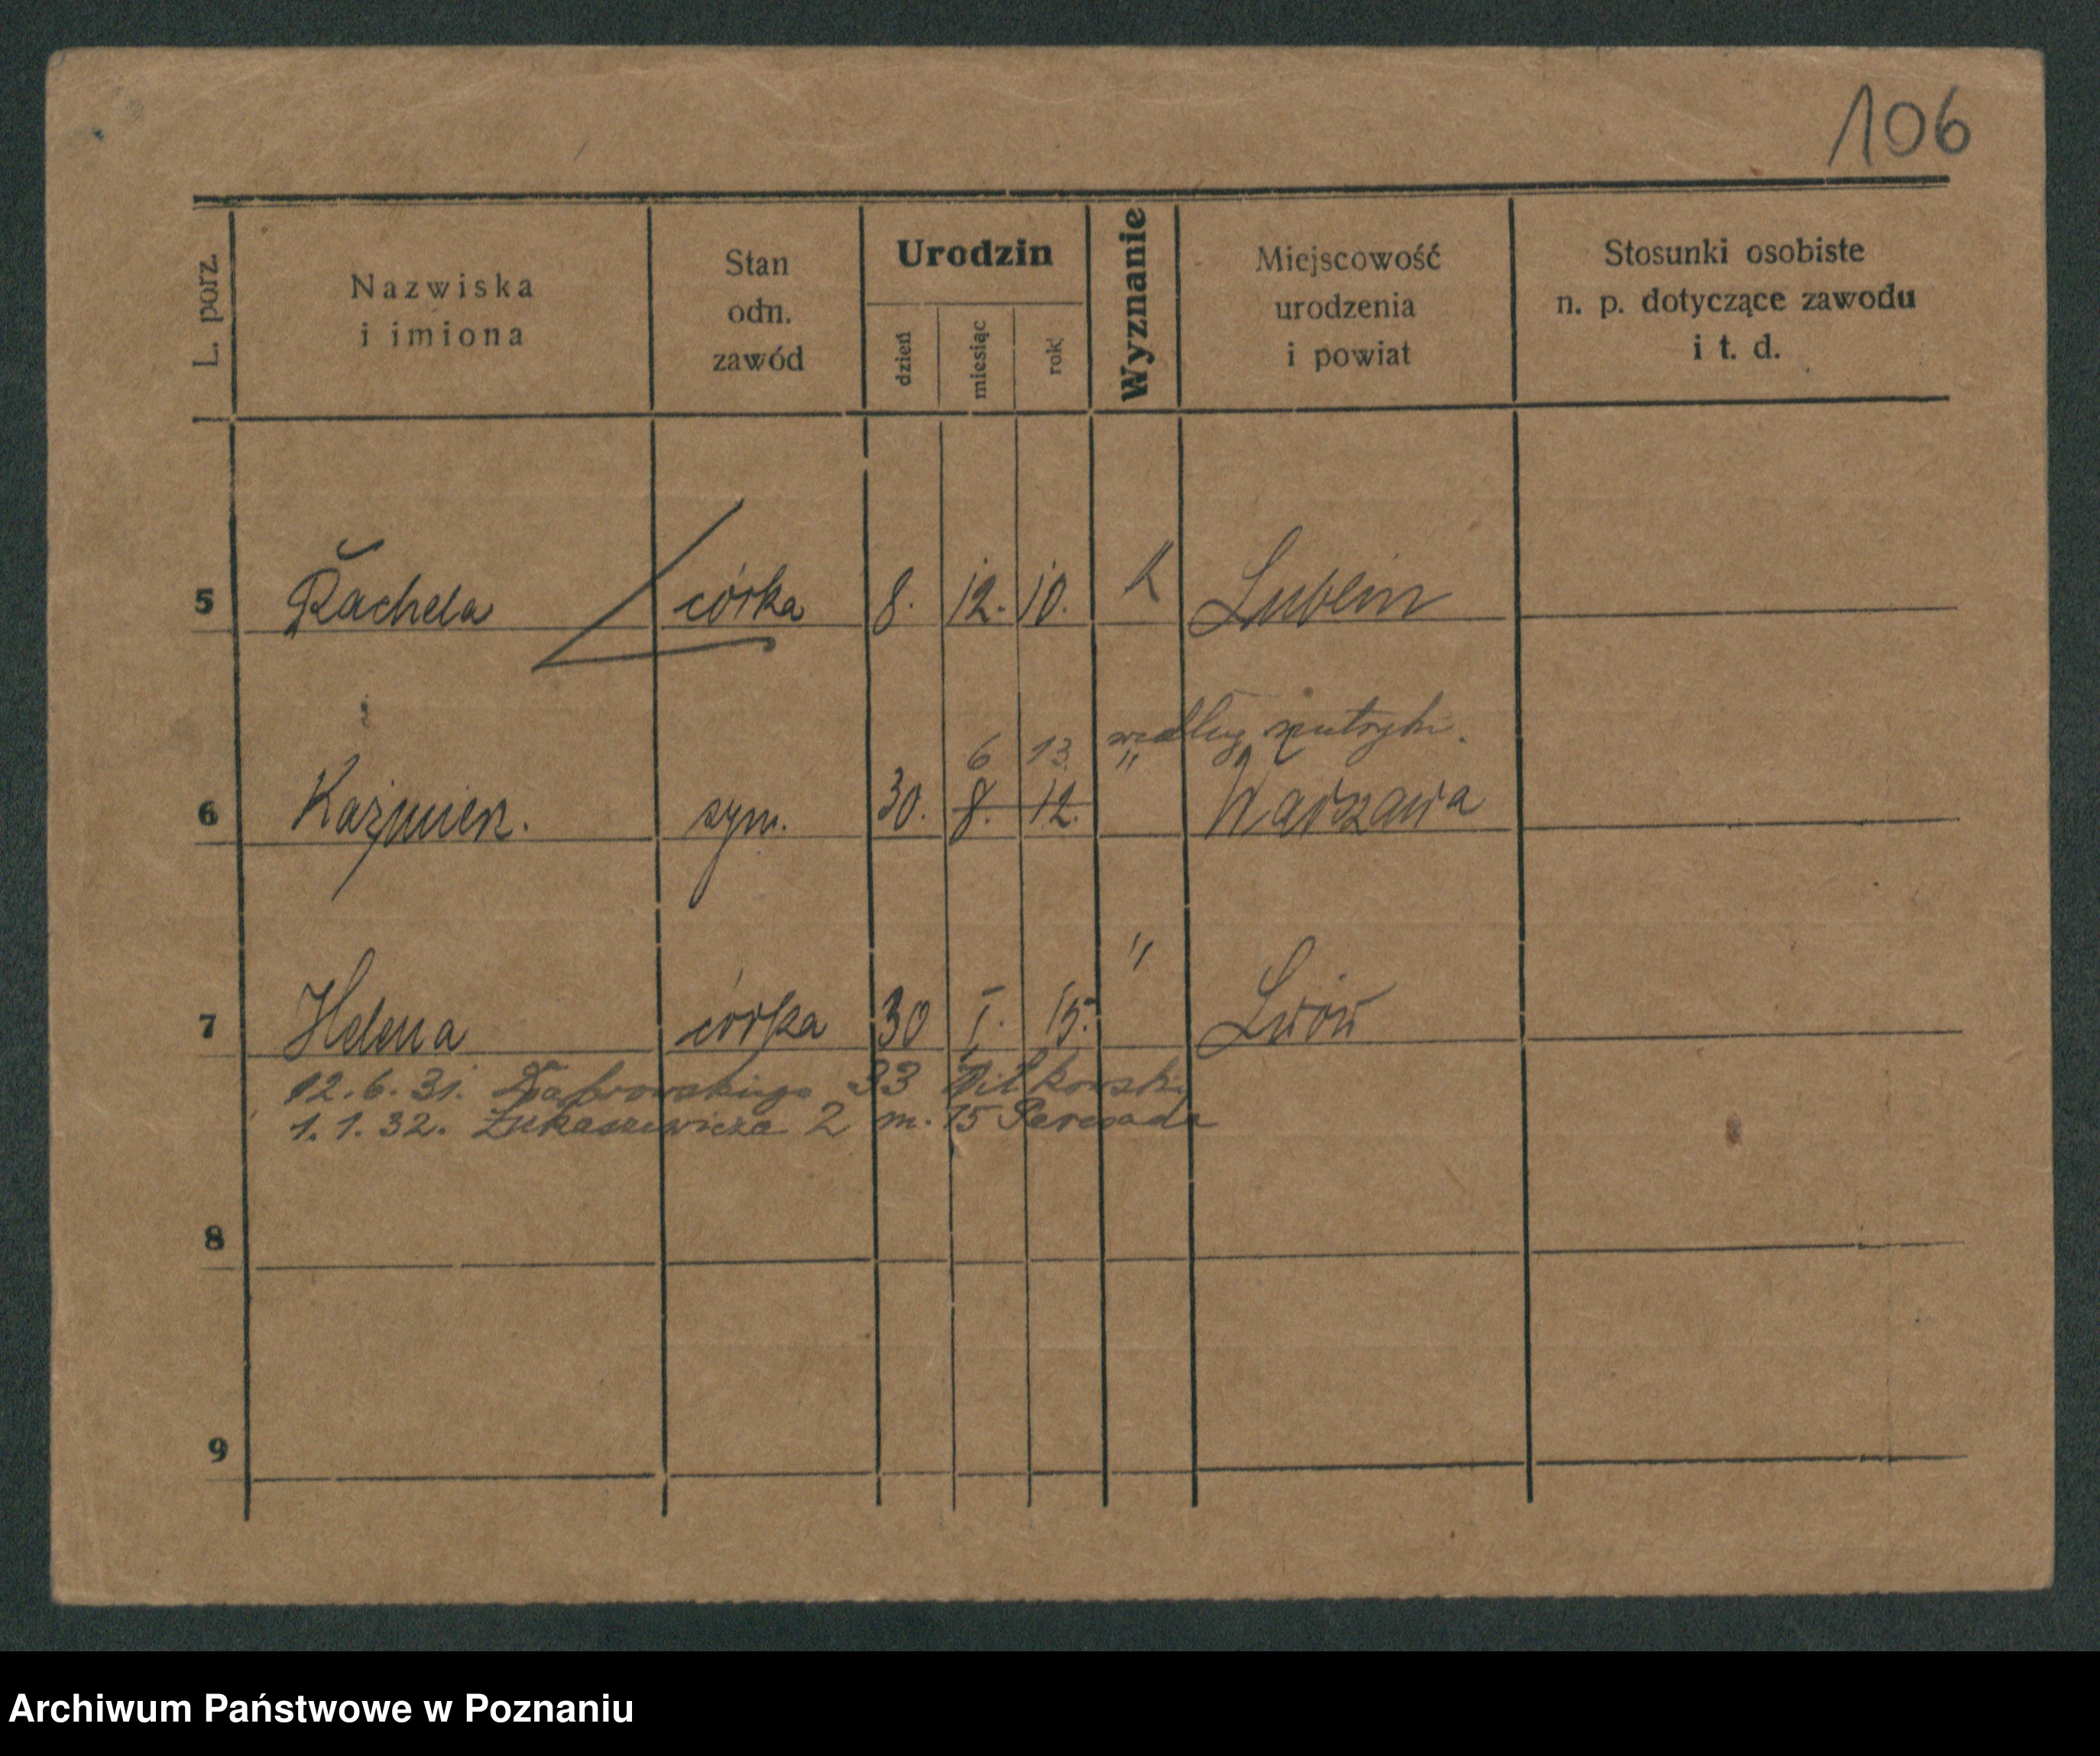 106
L. porz.
Nazwiska
i imiona
Stan
odn.
zawód
Urodzin
dzień
miesiąc
rok
Wyznanie
Miejscowość
urodzenia
i powiat
Stosunki osobiste
n. p. dotyczące zawodu
i t. d.
5 Rachela córka 8. 12. 10. K Lublin
według metryki.
6 13. "
6 Kaźmierz. syn. 30. 8. 12. Warszawa
7 Helena córka 30 I. 15. " Lwów
12.6.31. Dąbrowskiego 33 Witkowski
1.1.32. Łukaszewicza 2 m. 15
8
9
Archiwum Państwowe w Poznaniu